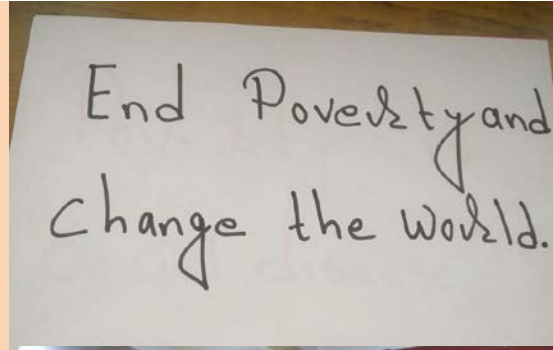 End Poverty and
change the world.